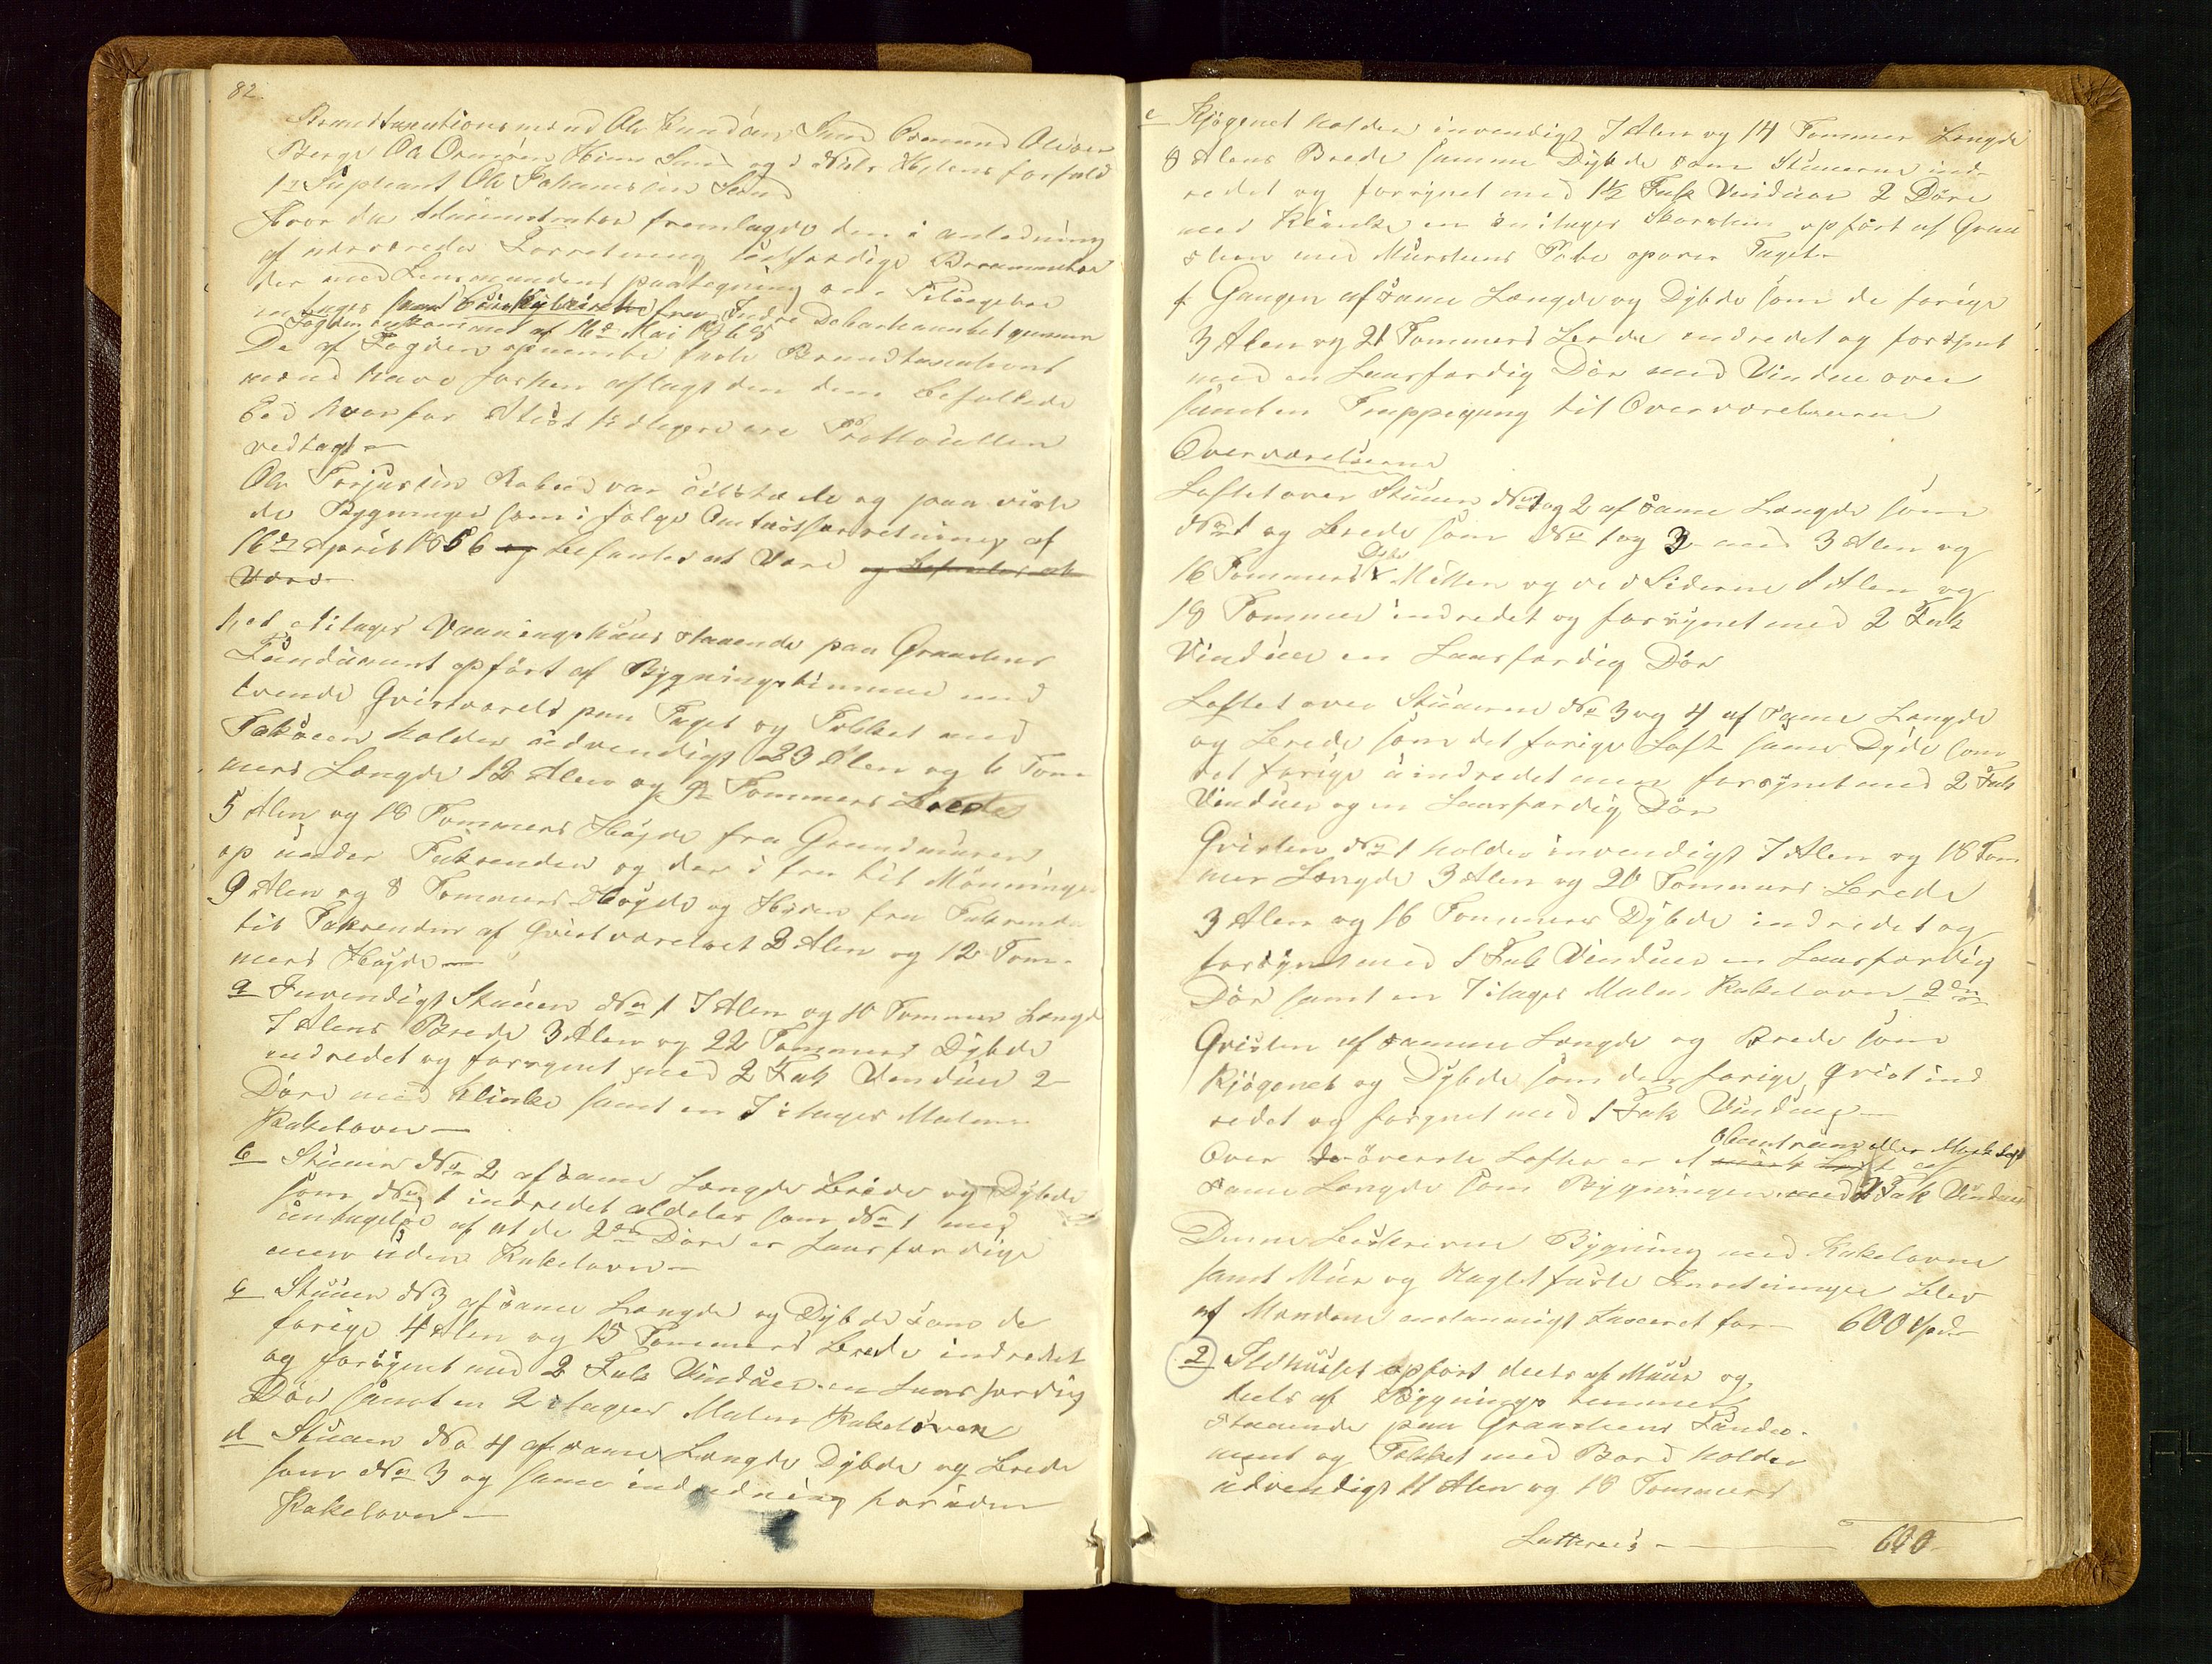 82.
Brandtaxationsmænd Ole Knudsen Sund Osmund Olsen
Berge Ole Ormsen Sund og i Niels forfald
1ste Supleant Ole Johannesen Sund
Hvor da Administrator fremlagde den i anledning
af nærværende Forretning udfærdige Berammelse
der med Lensmandens paategning om Tilsigelse
fra Indre
Fogden ankommet af 16de Mai 1865
De af Fogden opnævnte faste Brandtaxations
mænd have forhen aflagt den dem befallede
Eed hvorfor Attest tidligere ere Prottocullen
vedtagt
Ole Torjusen Rabe var tilstæde og paa viste
de Bygninger som i følge Omtaxtforretning af
16de April 1856 og befantes at Være og befantes at
Være
1, et Etages Vaaningshuus staaende paa Graastens
Fundament opført af Bygningstimmer med
tvende Qvistværels paa Taget og Tækket med
Taksten holder udvendigt 23 Alen og 6 Tom
mers Længde 12 Alen og 9 Tommers Brede
5 Alen og 18 Tommers Høyde fra Grundmuren
op under Takrenden og der i fra til Mønningen
9 Alen og 8 Tommers Høyde og Høiden fra Takrende
til Takrenden af Qvistværelset 3 Alen og 12 Tom-
mers Høyde
a Invendigt Stuen No 1 7 Alen og 10 Tommer Længde
7 Alens Brede 3 Alen og 22 Tommers Dybde
indredet og forsynet med 2 Fak Vinduer 2
Døre med Klinke samt en 3 etages Malm
Kakelovn
b Stuen No 2 af same Længde Brede og Dybde
som No 1 indredet aldeles som No 1 med
untagelse af at de 2de Døre er Laasfærdige
men uden Kakelovn
c Stuen No 3 af same Længde og Dybde som de
forige 4 Alen og 15 Tommers Brede indredet
og forsynet med 2 Fak Vinduer en Laasfærdig
Dør samt en 2 etages Malm Kakeloven
d Stuen No 4 af same Længde Dybde og Brede
som No 3 og same indredning foruden
Kakelovn
e Kjøgenet holder invendigt 7 Alen og 14 Tommer Længde
8 Alens Brede samme Dybde som Stuerne ind
redet og forsynet med 1½ Fak Vinduer 2 Døre
med Klinke en en etages Skorsten opført af Graa
sten med Murstens Pibe opover Taget
f Gangen af same Længde og Dybde som de forige
3 Alen og 21 Tommers Brede indredet og forsynet
med en Laasfærdig Dør med Vindue over
samt en Trappegang til Overværelserne
Overværelserne
Loftet over Stuen No 1 og 2 af same Længde som
No 1 og Brede som No 1 og 3 med 3 Alen og
16 Tommers Dybde i Mitten og ved Siderne 1 Alen og
18 Tommer indredet og forsynet med 2 Fak
Vinduer en Laasfærdig Dør
Loftet over Stuerne No 3 og 4 af same Længde
og Brede som det forige Loft same Dyde som
det forige uindredet men forsynet med 2 Fak
Vinduer og en Laasfærdig Dør
Qvisten No 1 holder invendigt 7 Alen og 18 Tom
mer Længde 3 Alen og 20 Tommers Brede
3 Alen og 16 Tommers Dybde indredet og
forsynet med 1 Fak Vinduer en Laasfærdig
Dør samt en 3 etages Malm Kakelovn 2den
Qvisten af samme Længde og Brede som
Kjøgenet og Dybde som den forige Qvist ind
redet og forsynet med 1 Fak Vinduer
Over de øverste Lofter er et mørk Loft af
eller Mørk Loft
same Længde som Bygningen med 2 Fak Vinduer
Denne beskrevne Bygning med Kakelovne
samt Mur og Nagelfaste Inretninger blev
af Mændene enstemmigt Taxeret for 600 Spd
2 Ildhuset opført deels af Muur og
deels af Bygnings tømmer
staaende paa Graastens Funda-
ment og Tækket med Bord holder
udvendigt 11 Alen og 18 Tommers
Latteres 600